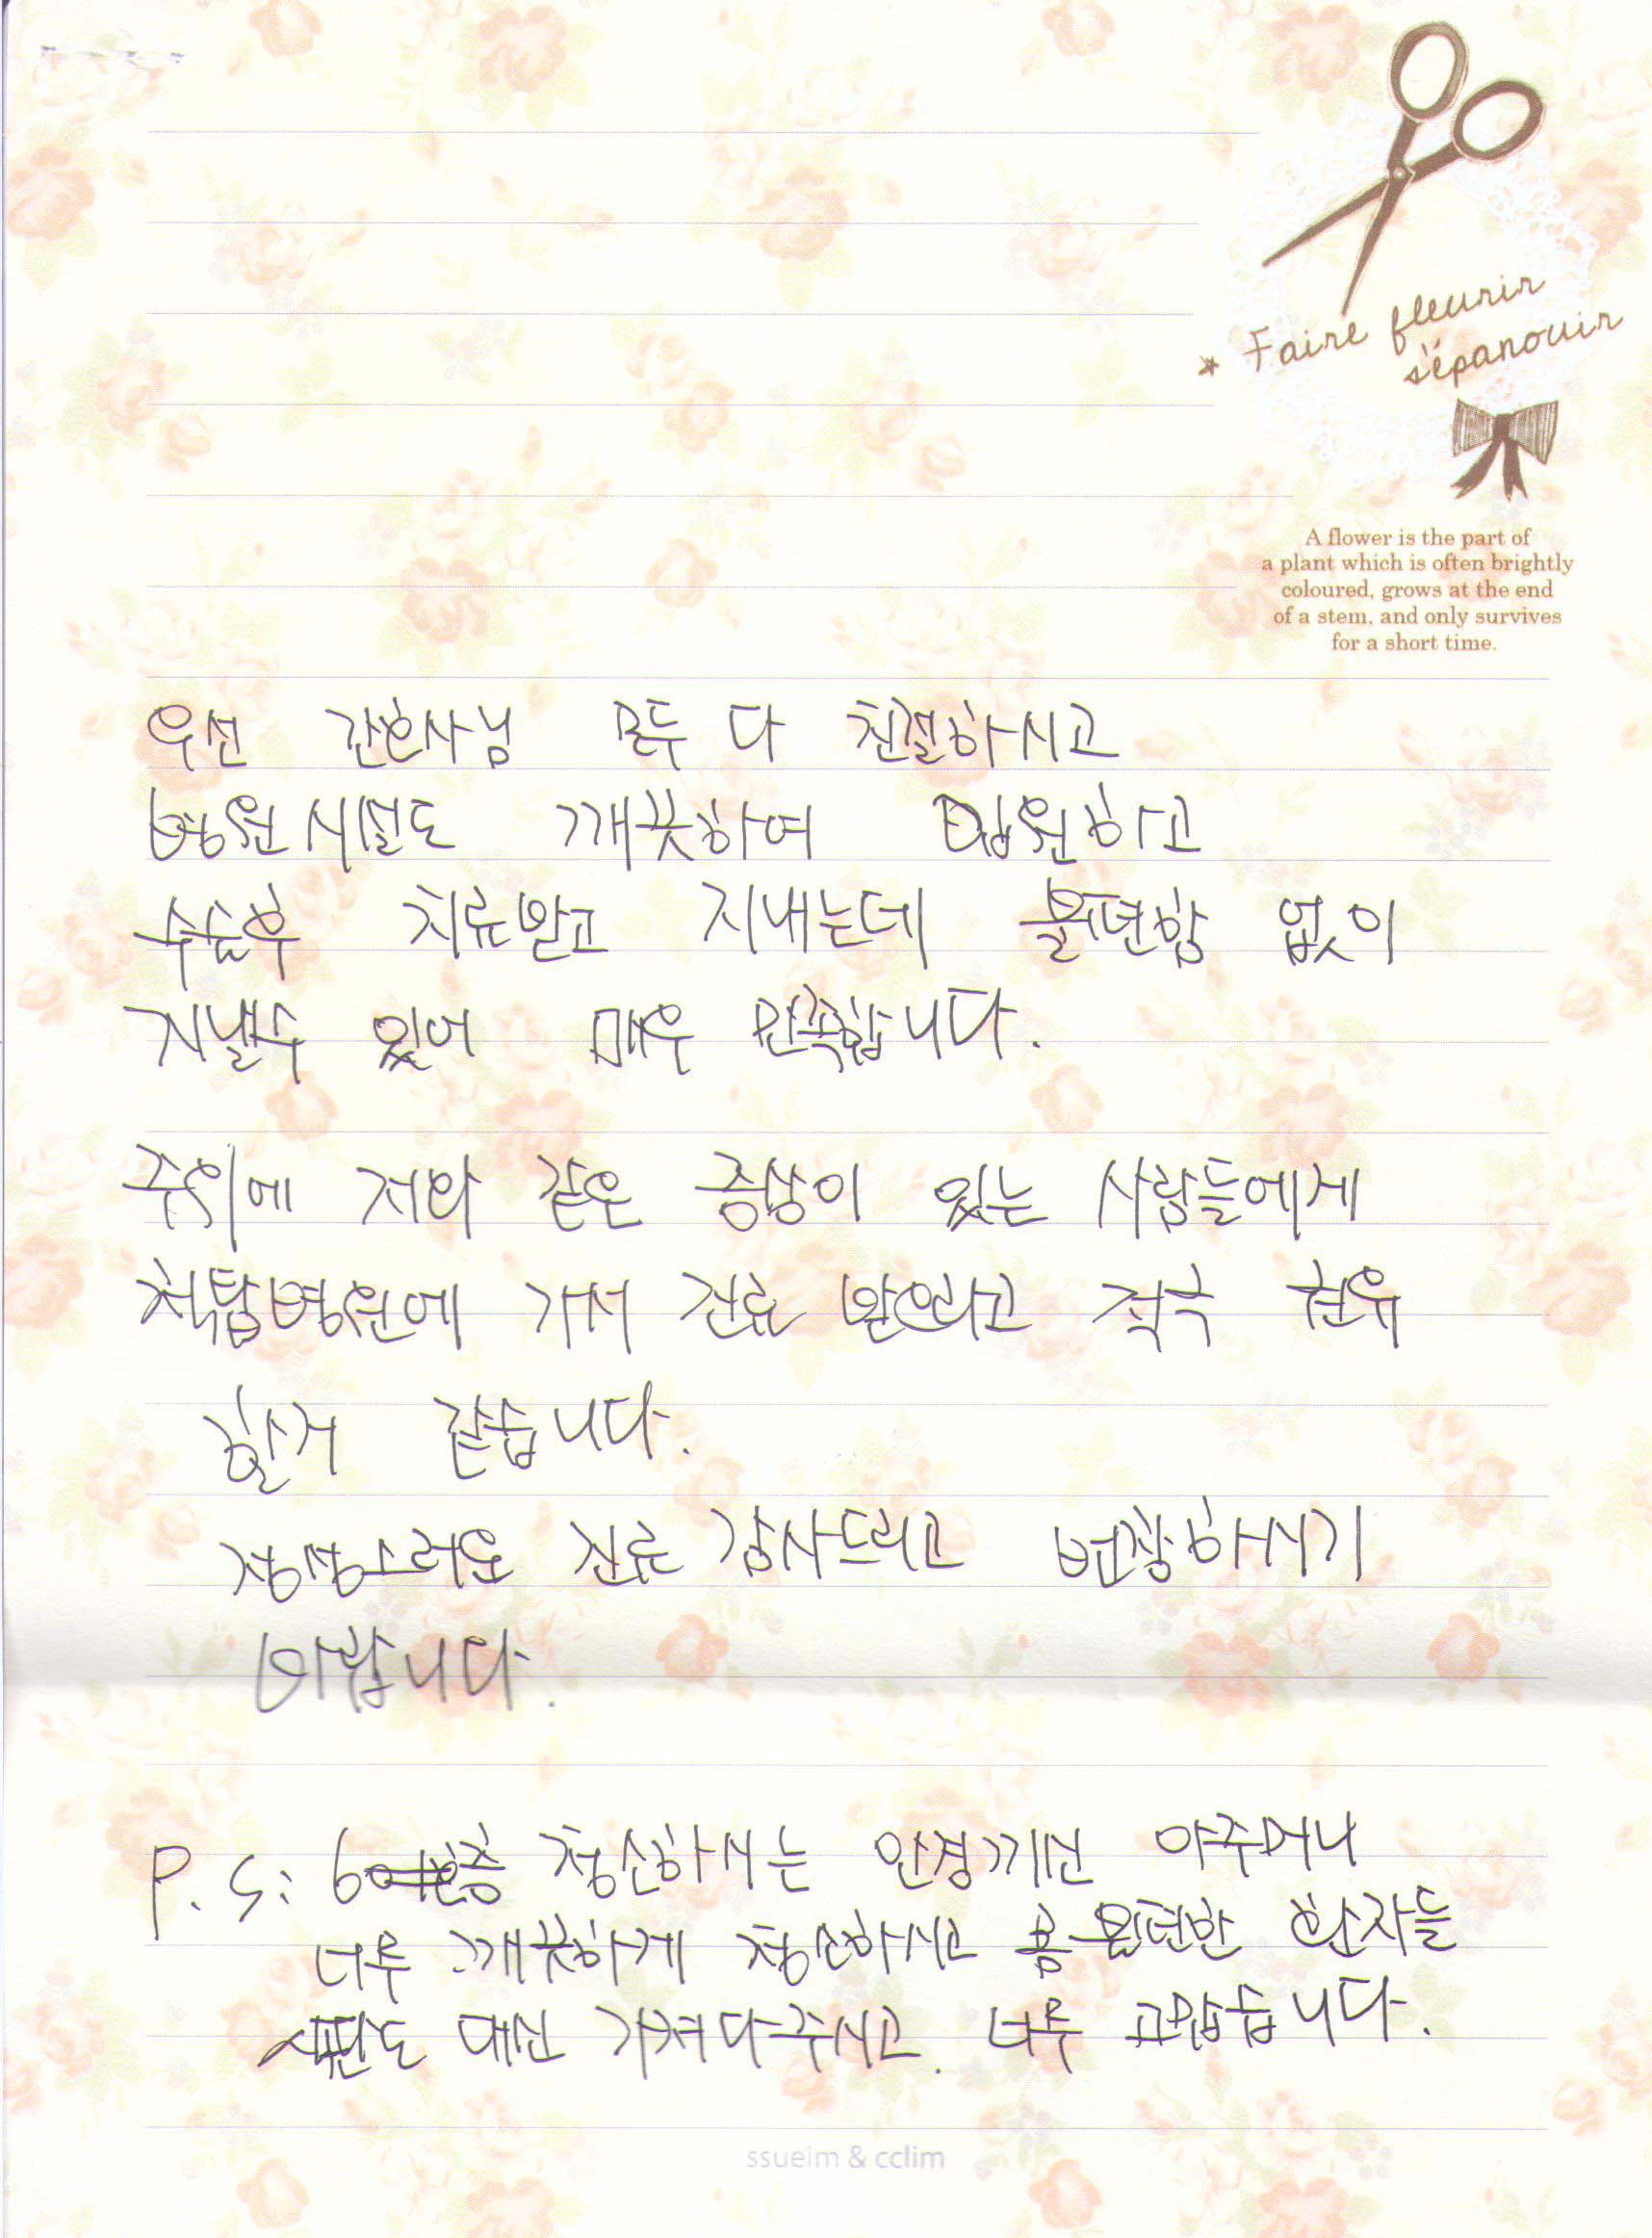 * Faire fleurir
s'épanouir
A flower is the part of
a plant which is often brightly
coloured, grows at the end
of a stem, and only survives
for a short time.
우선 간호사님 모두 다 친절하시고
병원시설도 깨끗하여 입원하고
수술후 치료받고 지내는데 불편함 없이
지낼수 있어 매우 만족합니다.
주위에 저와 같은 증상이 있는 사람들에게
척탑병원에 가서 진료 받으라고 적극 권유
할거 같습니다.
정성스러운 진료 감사드리고 번창하시기
바랍니다.
P.S: 6 층 청소하시는 안경끼신 아주머니
너무 깨끗하게 청소하시고 몸 불편한 환자들
식판도 대신 가져다주시고. 너무 고맙습니다.
ssueim & cclim